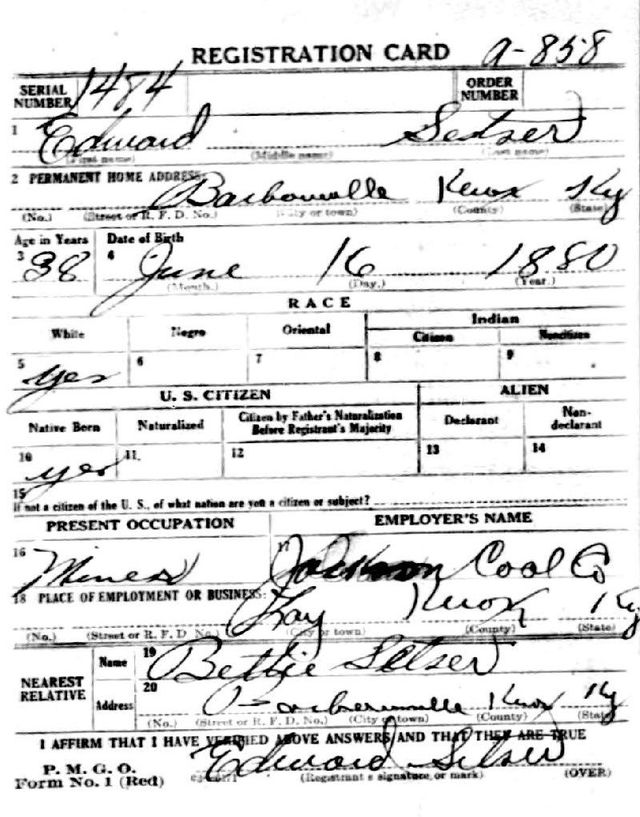 REGISTRATION CARD a-858
SERIAL NUMBER 1484 ORDER NUMBER
1 Edward Setser
(First name) (Middle name) (Last name)
2 PERMANENT HOME ADDRESS: Barbourville Knox Ky
(No.) (Street or R. F. D. No.) (City or town) (County) (State)
Age in Years Date of Birth
3 38 4 June 16 1880
(Month.) (Day.) (Year.)
RACE
White Negro Oriental Indian
Citizen Noncitizen
5 yes 6 7 8 9
U. S. CITIZEN ALIEN
Native Born Naturalized Citizen by Father's Naturalization Before Registrant's Majority Declarant Non-declarant
10 yes 11. 12 13 14
15
If not a citizen of the U. S., of what nation are you a citizen or subject?
PRESENT OCCUPATION EMPLOYER'S NAME
16 Miner 17 Coal Co
18 PLACE OF EMPLOYMENT OR BUSINESS: Knox Ky
(No.) (Street or R. F. D. No.) (City or town) (County) (State)
NEAREST RELATIVE Name 19 Bettie Setser
Address 20 Barbourville Knox Ky
(No.) (Street or R. F. D. No.) (City or town) (County) (State)
I AFFIRM THAT I HAVE VERIFIED ABOVE ANSWERS AND THAT THEY ARE TRUE
P. M. G. O.
Form No. 1 (Red) Edward Setser
(Registrant's signature or mark) (OVER)